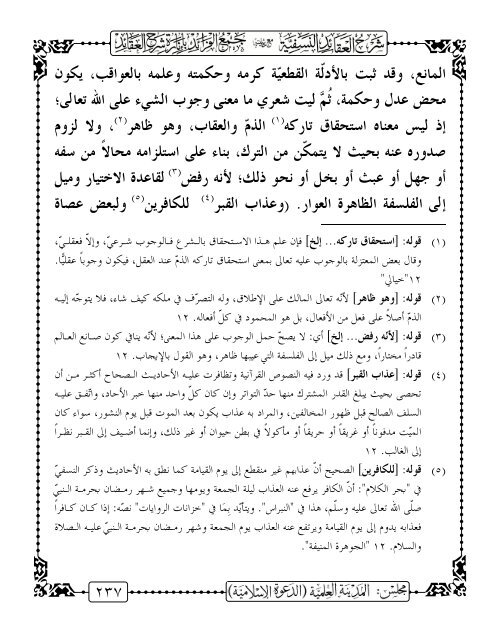 شرح العقائد النسفية مع حاشية جمع الفرائد بإنارة شرح العقائد
المانع، وقد ثبت بالأدلّة القطعيّة كرمه وحكمته وعلمه بالعواقب، يكون
محض عدل وحكمة، ثُمَّ ليت شعري ما معنى وجوب الشيء على الله تعالى؛
إذ ليس معناه استحقاق تاركه(١) الذمّ والعقاب، وهو ظاهر(٢)، ولا لزوم
صدوره عنه بحيث لا يتمكّن من الترك، بناء على استلزامه محالاً من سفه
أو جهل أو عبث أو بخل أو نحو ذلك؛ لأنه رفض(٣) لقاعدة الاختيار وميل
إلى الفلسفة الظاهرة العوار. (وعذاب القبر(٤) للكافرين(٥) ولبعض عصاة
(١) قوله: [استحقاق تاركه... إلخ] فإن علم هذا الاستحقاق بالشرع فالوجوب شرعيّ، وإلّا فعقليّ،
وقال بعض المعتزلة بالوجوب عليه تعالى بمعنى استحقاق تاركه الذمّ عند العقل، فيكون وجوباً عقليًّا.
١٢"خيالي"
(٢) قوله: [وهو ظاهر] لأنّه تعالى المالك على الإطلاق، وله التصرّف في ملكه كيف شاء، فلا يتوجّه إليه
الذمّ أصلاً على فعل من الأفعال، بل هو المحمود في كلّ أفعاله. ١٢
(٣) قوله: [لأنه رفض... إلخ] أي: لا يصحّ حمل الوجوب على هذا المعنى؛ لأنّه ينافي كون صانع العالم
قادراً مختاراً، ومع ذلك ميل إلى الفلسفة التي عيبها ظاهر، وهو القول بالإيجاب. ١٢
(٤) قوله: [عذاب القبر] قد ورد فيه النصوص القرآنية وتظافرت عليه الأحاديث الصحاح أكثر من أن
تحصى بحيث يبلغ القدر المشترك منها حدّ التواتر وإن كان كلّ واحد منها خبر الآحاد، واتّفق عليه
السلف الصالح قبل ظهور المخالفين، والمراد به عذاب يكون بعد الموت قبل يوم النشور، سواء كان
الميّت مدفوناً أو غريقاً أو حريقاً أو مأكولاً في بطن حيوان أو غير ذلك، وإنما أضيف إلى القبر نظراً
إلى الغالب. ١٢
(٥) قوله: [للكافرين] الصحيح أنّ عذابهم غير منقطع إلى يوم القيامة كما نطق به الأحاديث وذكر النسفيّ
في "بحر الكلام": أنّ الكافر يرفع عنه العذاب ليلة الجمعة ويومها وجميع شهر رمضان بحرمة النبيّ
صلّى الله تعالى عليه وسلّم، هذا في "النبراس". ويتأيّد بِمَا في "خزانات الروايات" نصّه: إذا كان كافراً
فعذابه يدوم إلى يوم القيامة ويرتفع عنه العذاب يوم الجمعة وشهر رمضان بحرمة النبيّ عليه الصلاة
والسلام. ١٢ "الجوهرة المنيفة".
مجلس: المدينة العلمية (الدعوة الإسلامية)
٢٣٧